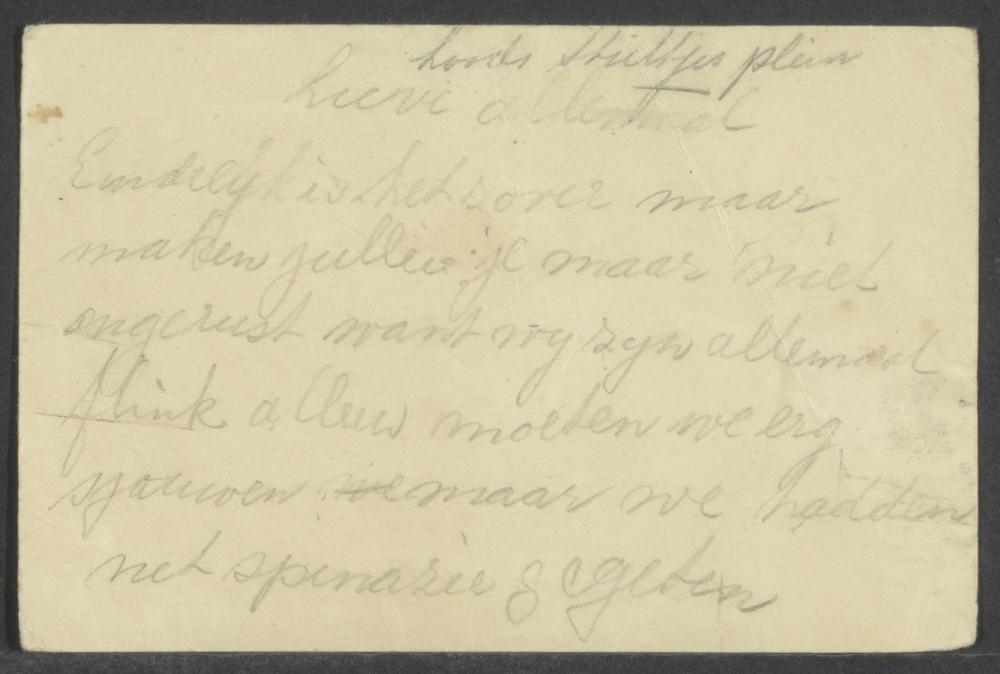 Stieltjes plein
Lieve allemaal
Eindelijk is het zover maar
maken jullie je maar niet
ongerust want wy zyn allemaal
flink alleen moeten we erg
sjouwen we maar we hadden
net spinazie gegeten